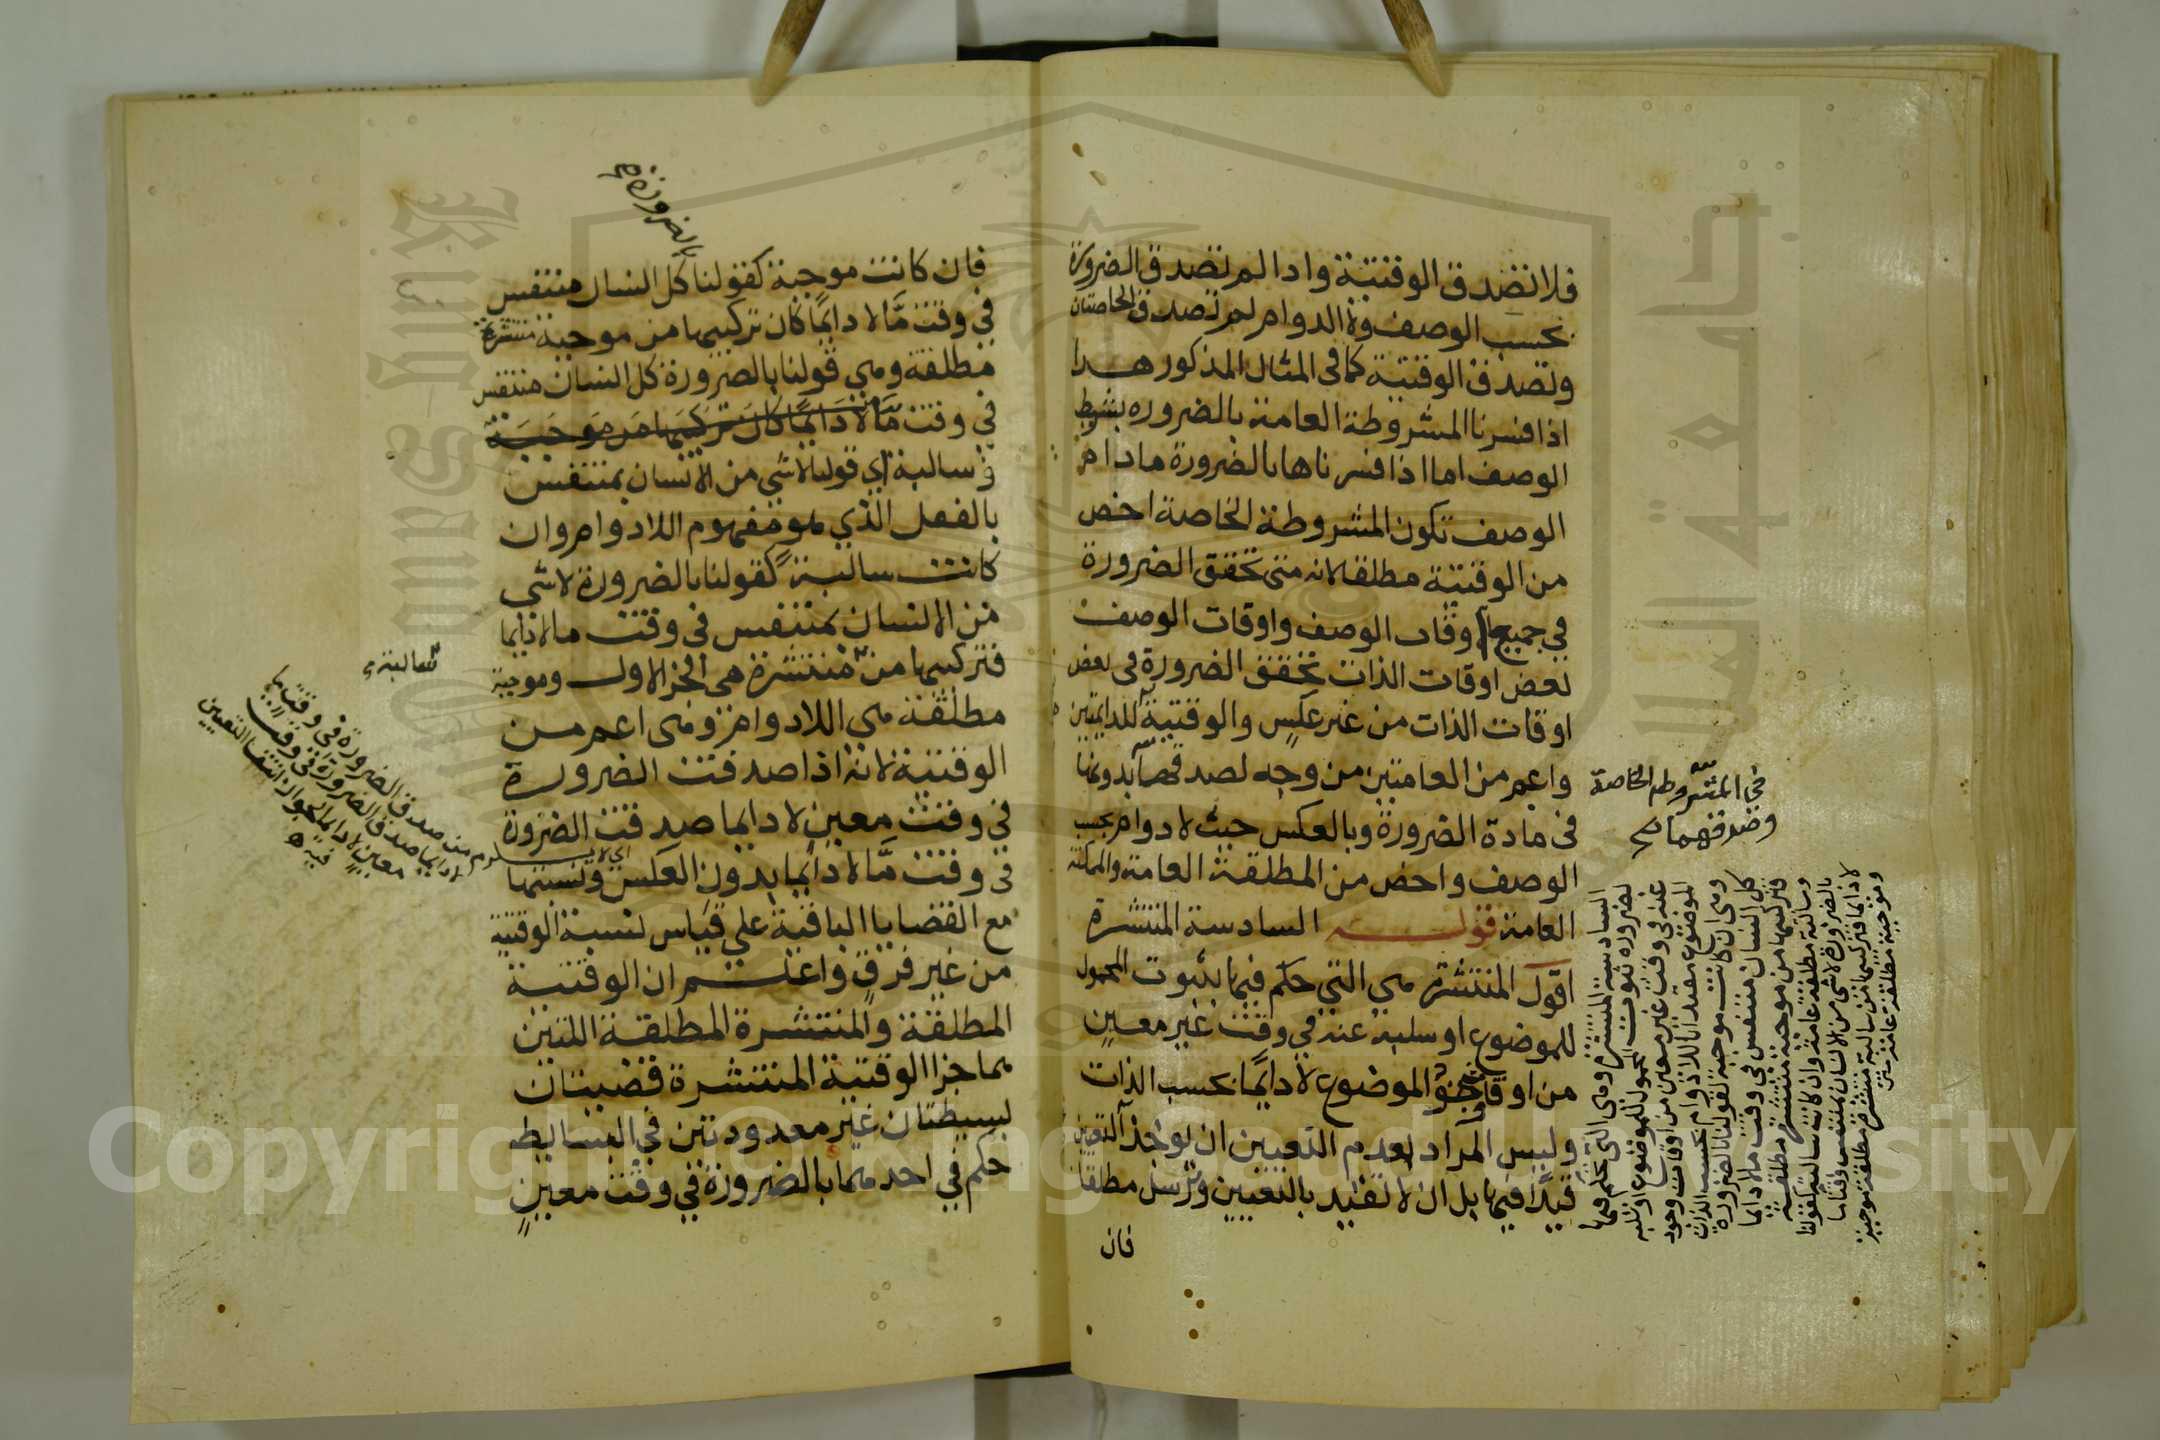 فلا تصدق الوقتية واذا لم تصدق الضرورة
بحسب الوصف ولا الدوام لم تصدق الخاصتان
وتصدق الوقتية كما في المثال المذكور هذا
اذا فسرنا المشروطة العامة بالضروره بشرط
الوصف اما اذا فسرناها بالضرورة مادام
الوصف تكون المشروطة الخاصة اخص
من الوقتية مطلقا لانه متى تحقق الضرورة
في جميع اوقات الوصف واوقات الوصف
بعض اوقات الذات تحقق الضرورة في بعض
اوقات الذات من غير عكس والوقتية
واعم من العامتين من وجه لصدقها بدونها
في مادة الضرورة وبالعكس حيث لا دوام بحسب
الوصف واخص من المطلقة العامة والممكنة
العامة قوله السادسة المنتشرة
اقول المنتشرة هي التي حكم فيها بثبوت المحمول
للموضوع او سلبه عنه في وقت غير معين
من اوقات الموضوع لا دايما بحسب الذات
وليس المراد بعدم التعيين ان يوخذ التعيين
قيدا فيها بل ان لا تقيد بالتعيين وترسل مطلقا
فان
في المشروطه الخاصة
وصدقهما
السادسة المنتشره وهي التي حكم فيها
لضروره ثبوت المحمول للموضوع او سلبه
عنه في وقت غير معين من اوقات وجود
الموضوع مقيدا باللادوام بحسب الذات
وهي ان كانت موجبة كقولنا بالضرورة
كل انسان متنفس في وقت ما لا دايما
فتركيبها من موجبة منتشرة مطلقة
وسالبة مطلقة عامة وان كانت سالبة كقولنا
بالضرورة لا شي من الانسان بمتنفس وقتا ما
لا دايما فتركيبها من سالبة منتشرة مطلقة وموجبة
وموجبة مطلقة عامة
بالضرورة صح
فان كانت موجبة كقولنا كل انسان متنفس
في وقت ما لا دايما كان تركيبها من موجبة منتشرة
مطلقة وهي قولنا بالضرورة كل انسان متنفس
في وقت ما لا دايما كان تركيبها من موجبة
وسالبة اي قولنا لا شي من الانسان بمتنفس
بالفعل الذي هو مفهوم اللادوام وان
كانت سالبة كقولنا بالضرورة لا شي
من الانسان بمتنفس في وقت ما لا دايما
فتركيبها من منتشرة هي الجز الاول وموجبة
مطلقة هي اللادوام وهي اعم من
الوقتية لانه اذا صدقت الضرورة
في وقت معين لا دايما صدقت الضرورة
في وقت ما لا دايما بدون العكس ونسبتها
مع القضايا الباقية على قياس نسبة الوقتية
من غير فرق واعلم ان الوقتية
المطلقة والمنتشرة المطلقة اللتين
هما جزا الوقتية المنتشرة قضيتان
بسيطتان غير معدودتين في البسايط
حكم في احدهما بالضرورة في وقت معين
سالبة
اي لا يلزم من صدق الضرورة في وقت ما
لا دايما صدق الضرورة في وقت
معين لا دايما لجواز انتفا التعيين
فيه